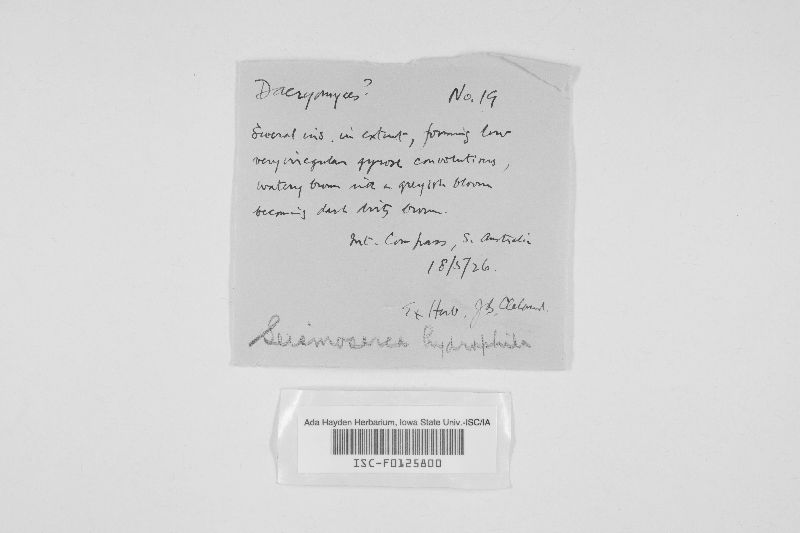 Dacryomyces? No. 19
Several ins. in extent, forming low
very irregular gyrose convolutions,
watery brown with a greyish bloom
becoming dark dirty brown.
Mt. Compass, S. Australia
18/5/26.
Ex Herb. J.B. Cleland.
Seismosarca hydrophila
Ada Hayden Herbarium, Iowa State Univ.-ISC/IA
ISC-F0125800